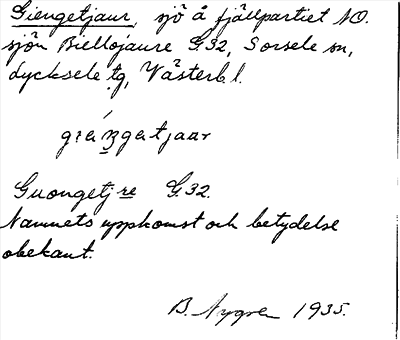 Giengetjaur, sjö å fjällpartiet NO.
sjön Biellojaure G32, Sorsele sn,
Lycksele tg, Västerb. l.
Guongetjre G.32.
Namnets uppkomst och betydelse
obekant.
B. Nygren 1935.